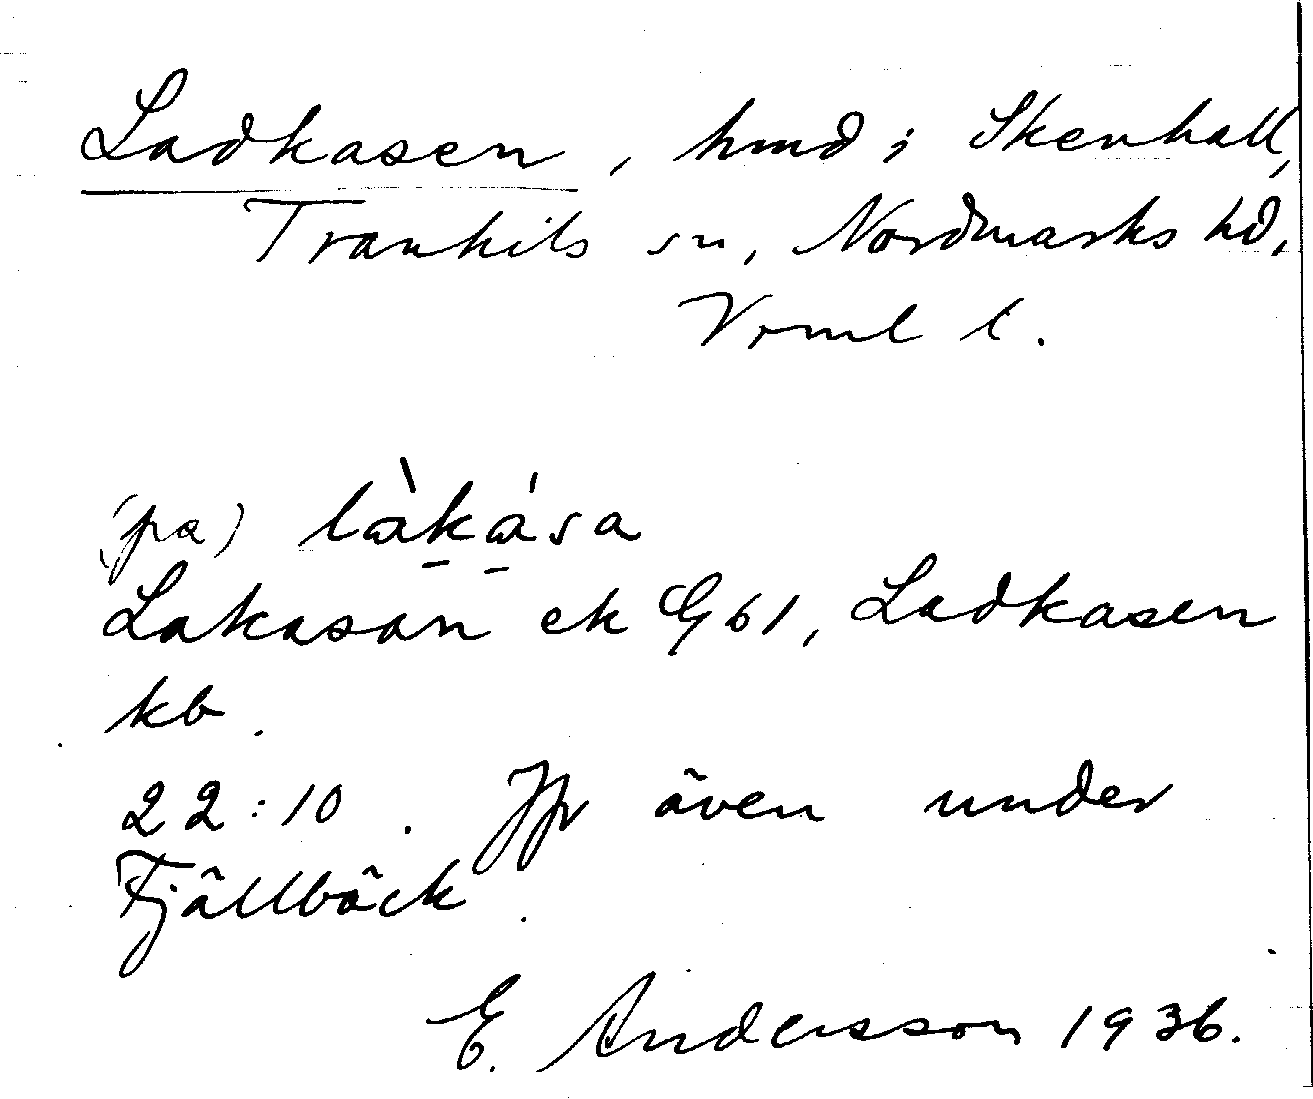 Ladkasen, hmd i Skenhall,
Trankils sn, Nordmarks hd,
Vrml l.
(pa) làkása
Lakasan ek G 61, Ladkasen
kb.
22:10. Jfr även under
Fjällbäck.
E. Andersson 1936.